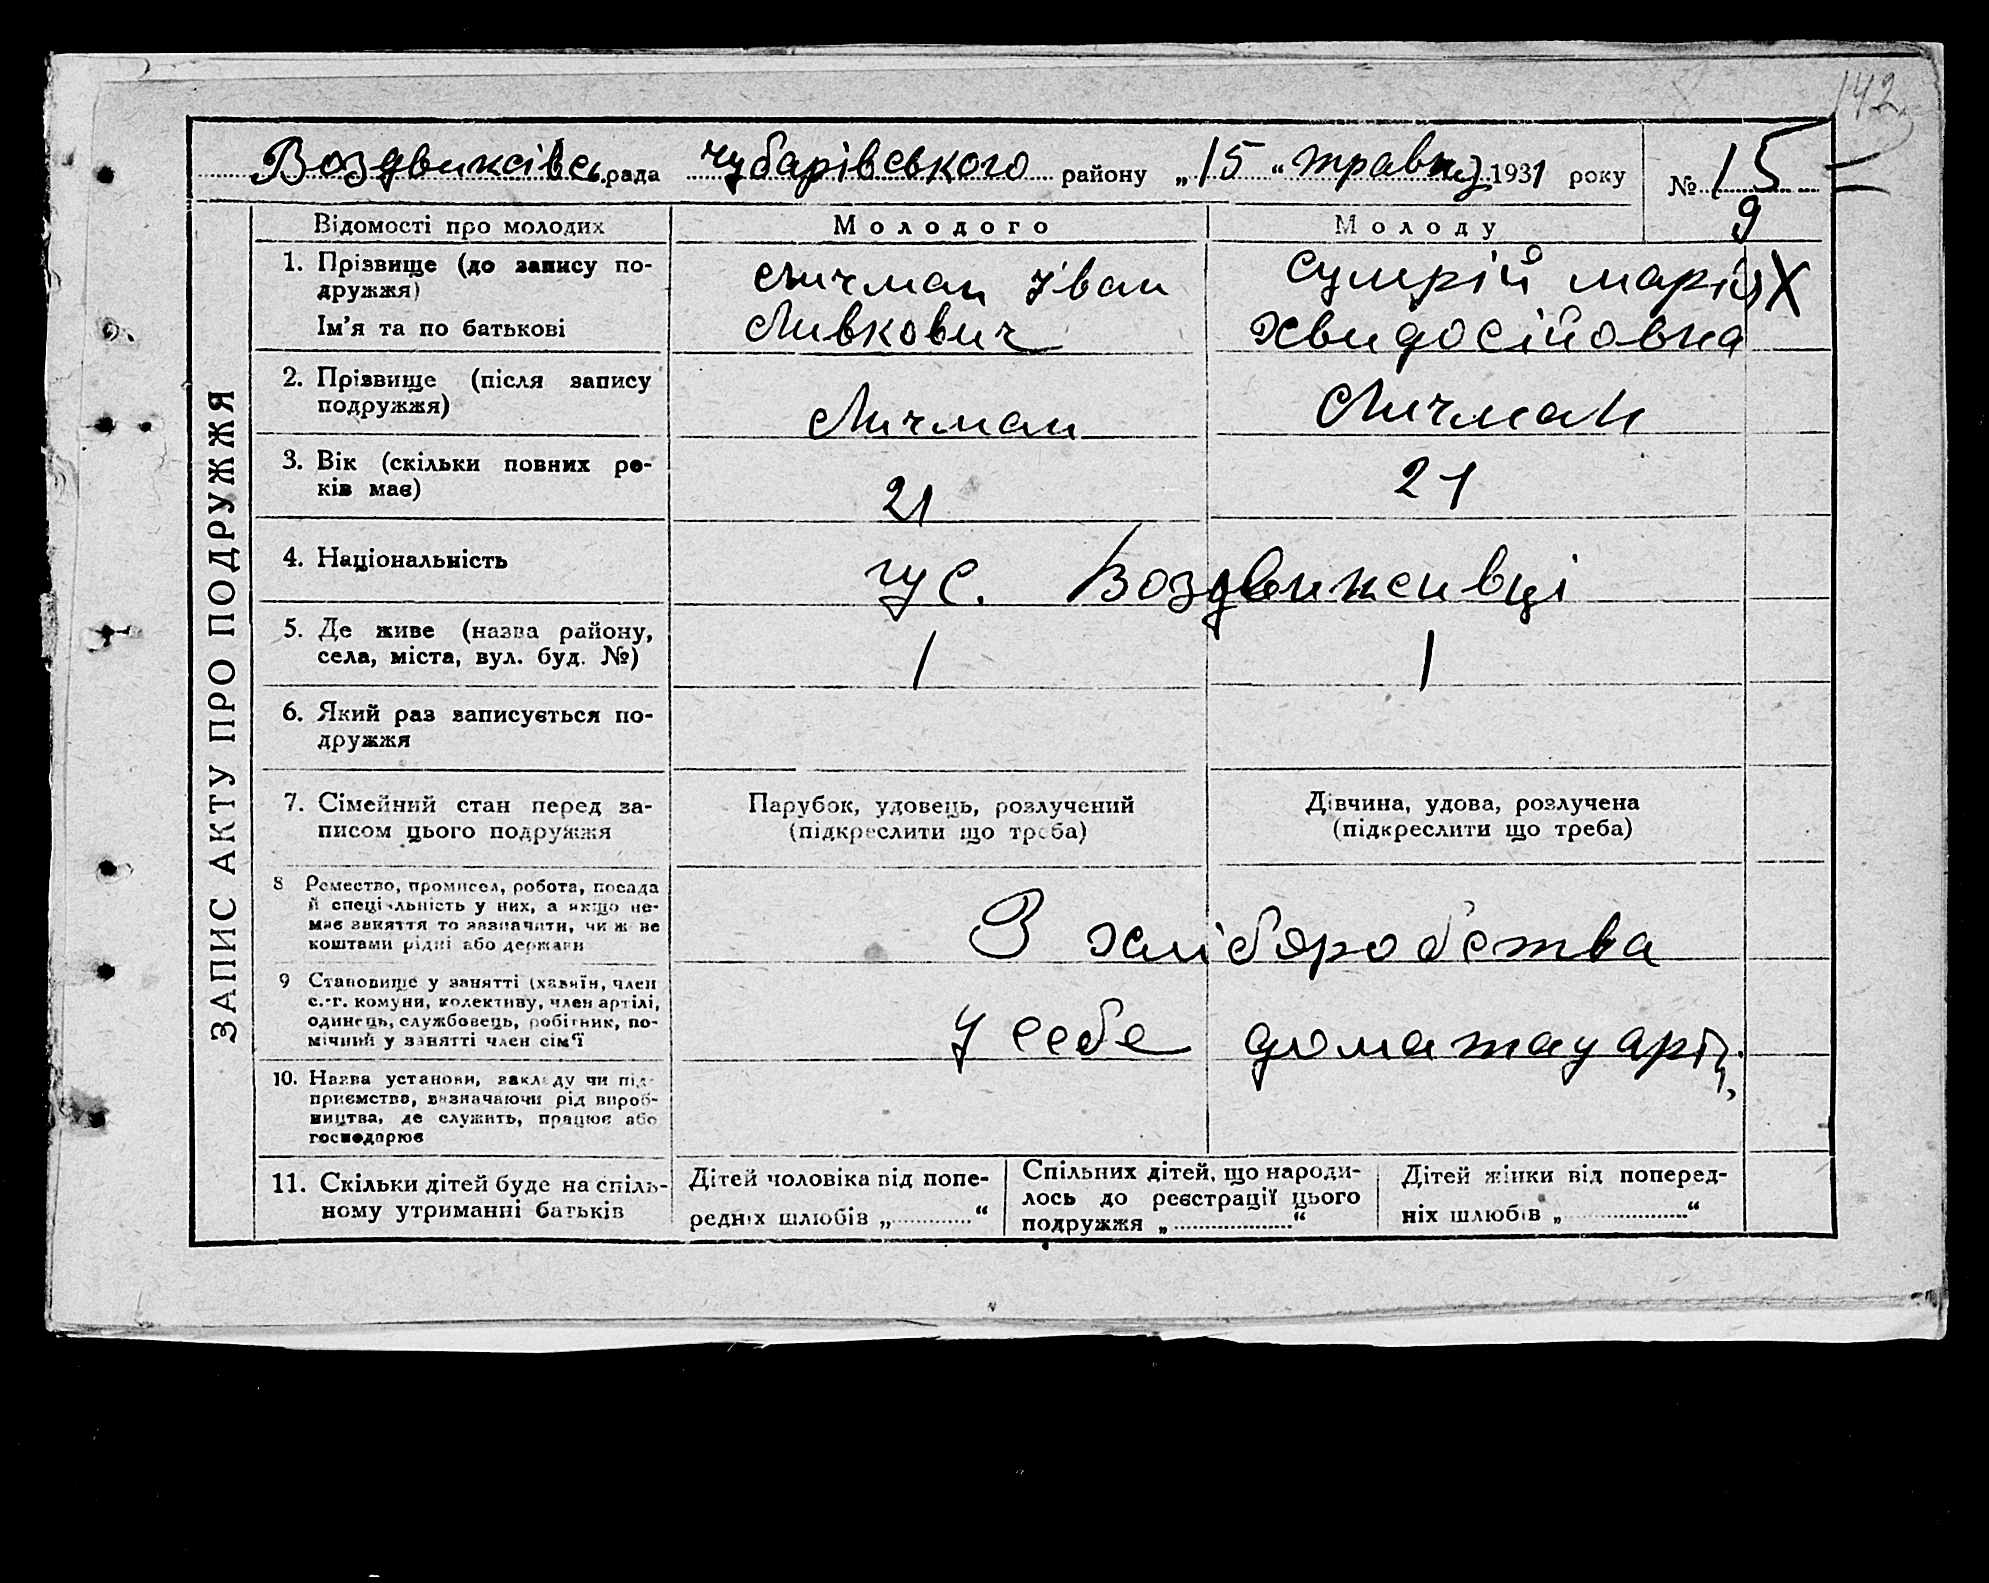 142
Воздвижсівсь. рада чубарівського району „15“ травня 1931 року № 15
9
ЗАПИС АКТУ ПРО ПОДРУЖЖЯ
Відомості про молодих
Молодого
Молоду
1. Прізвище (до запису по-
дружжя)
Ім’я та по батькові
Личман Іван
Ливкович
Сумрій марія X
Хвидосійовна
2. Прізвище (після запису
подружжя)
Личман
Личман
3. Вік (скільки повних ро-
ків має)
21
21
4. Національність
у с. Воздвиженивці
5. Де живе (назва району,
села, міста, вул. буд. №)
1
1
6. Який раз записується по-
дружжя
7. Сімейний стан перед за-
писом цього подружжя
Парубок, удовець, розлучений
(підкреслити що треба)
Дівчина, удова, розлучена
(підкреслити що треба)
8 Ремество, промисел, робота, посада
й спеціяльність у них, а якщо не-
має заняття то зазначити, чи ж не
коштами рідні або держави
З хліборобства
9 Становище у занятті (хазяїн, член
с.-г. комуни, колективу, член артілі,
одинець, службовець, робітник, по-
мічний у занятті член сім’ї
У себе дома та у арті,
10. Назва установи, закладу чи під-
приємства, визначаючи рід вироб-
ництва, де служить, працює або
господарює
11. Скільки дітей буде на спіль-
ному утриманні батьків
Дітей чоловіка від попе-
редніх шлюбів „............“
Спільних дітей, що народи-
лось до реєстрації цього
подружжя „............“
Дітей жінки від поперед-
ніх шлюбів „............“